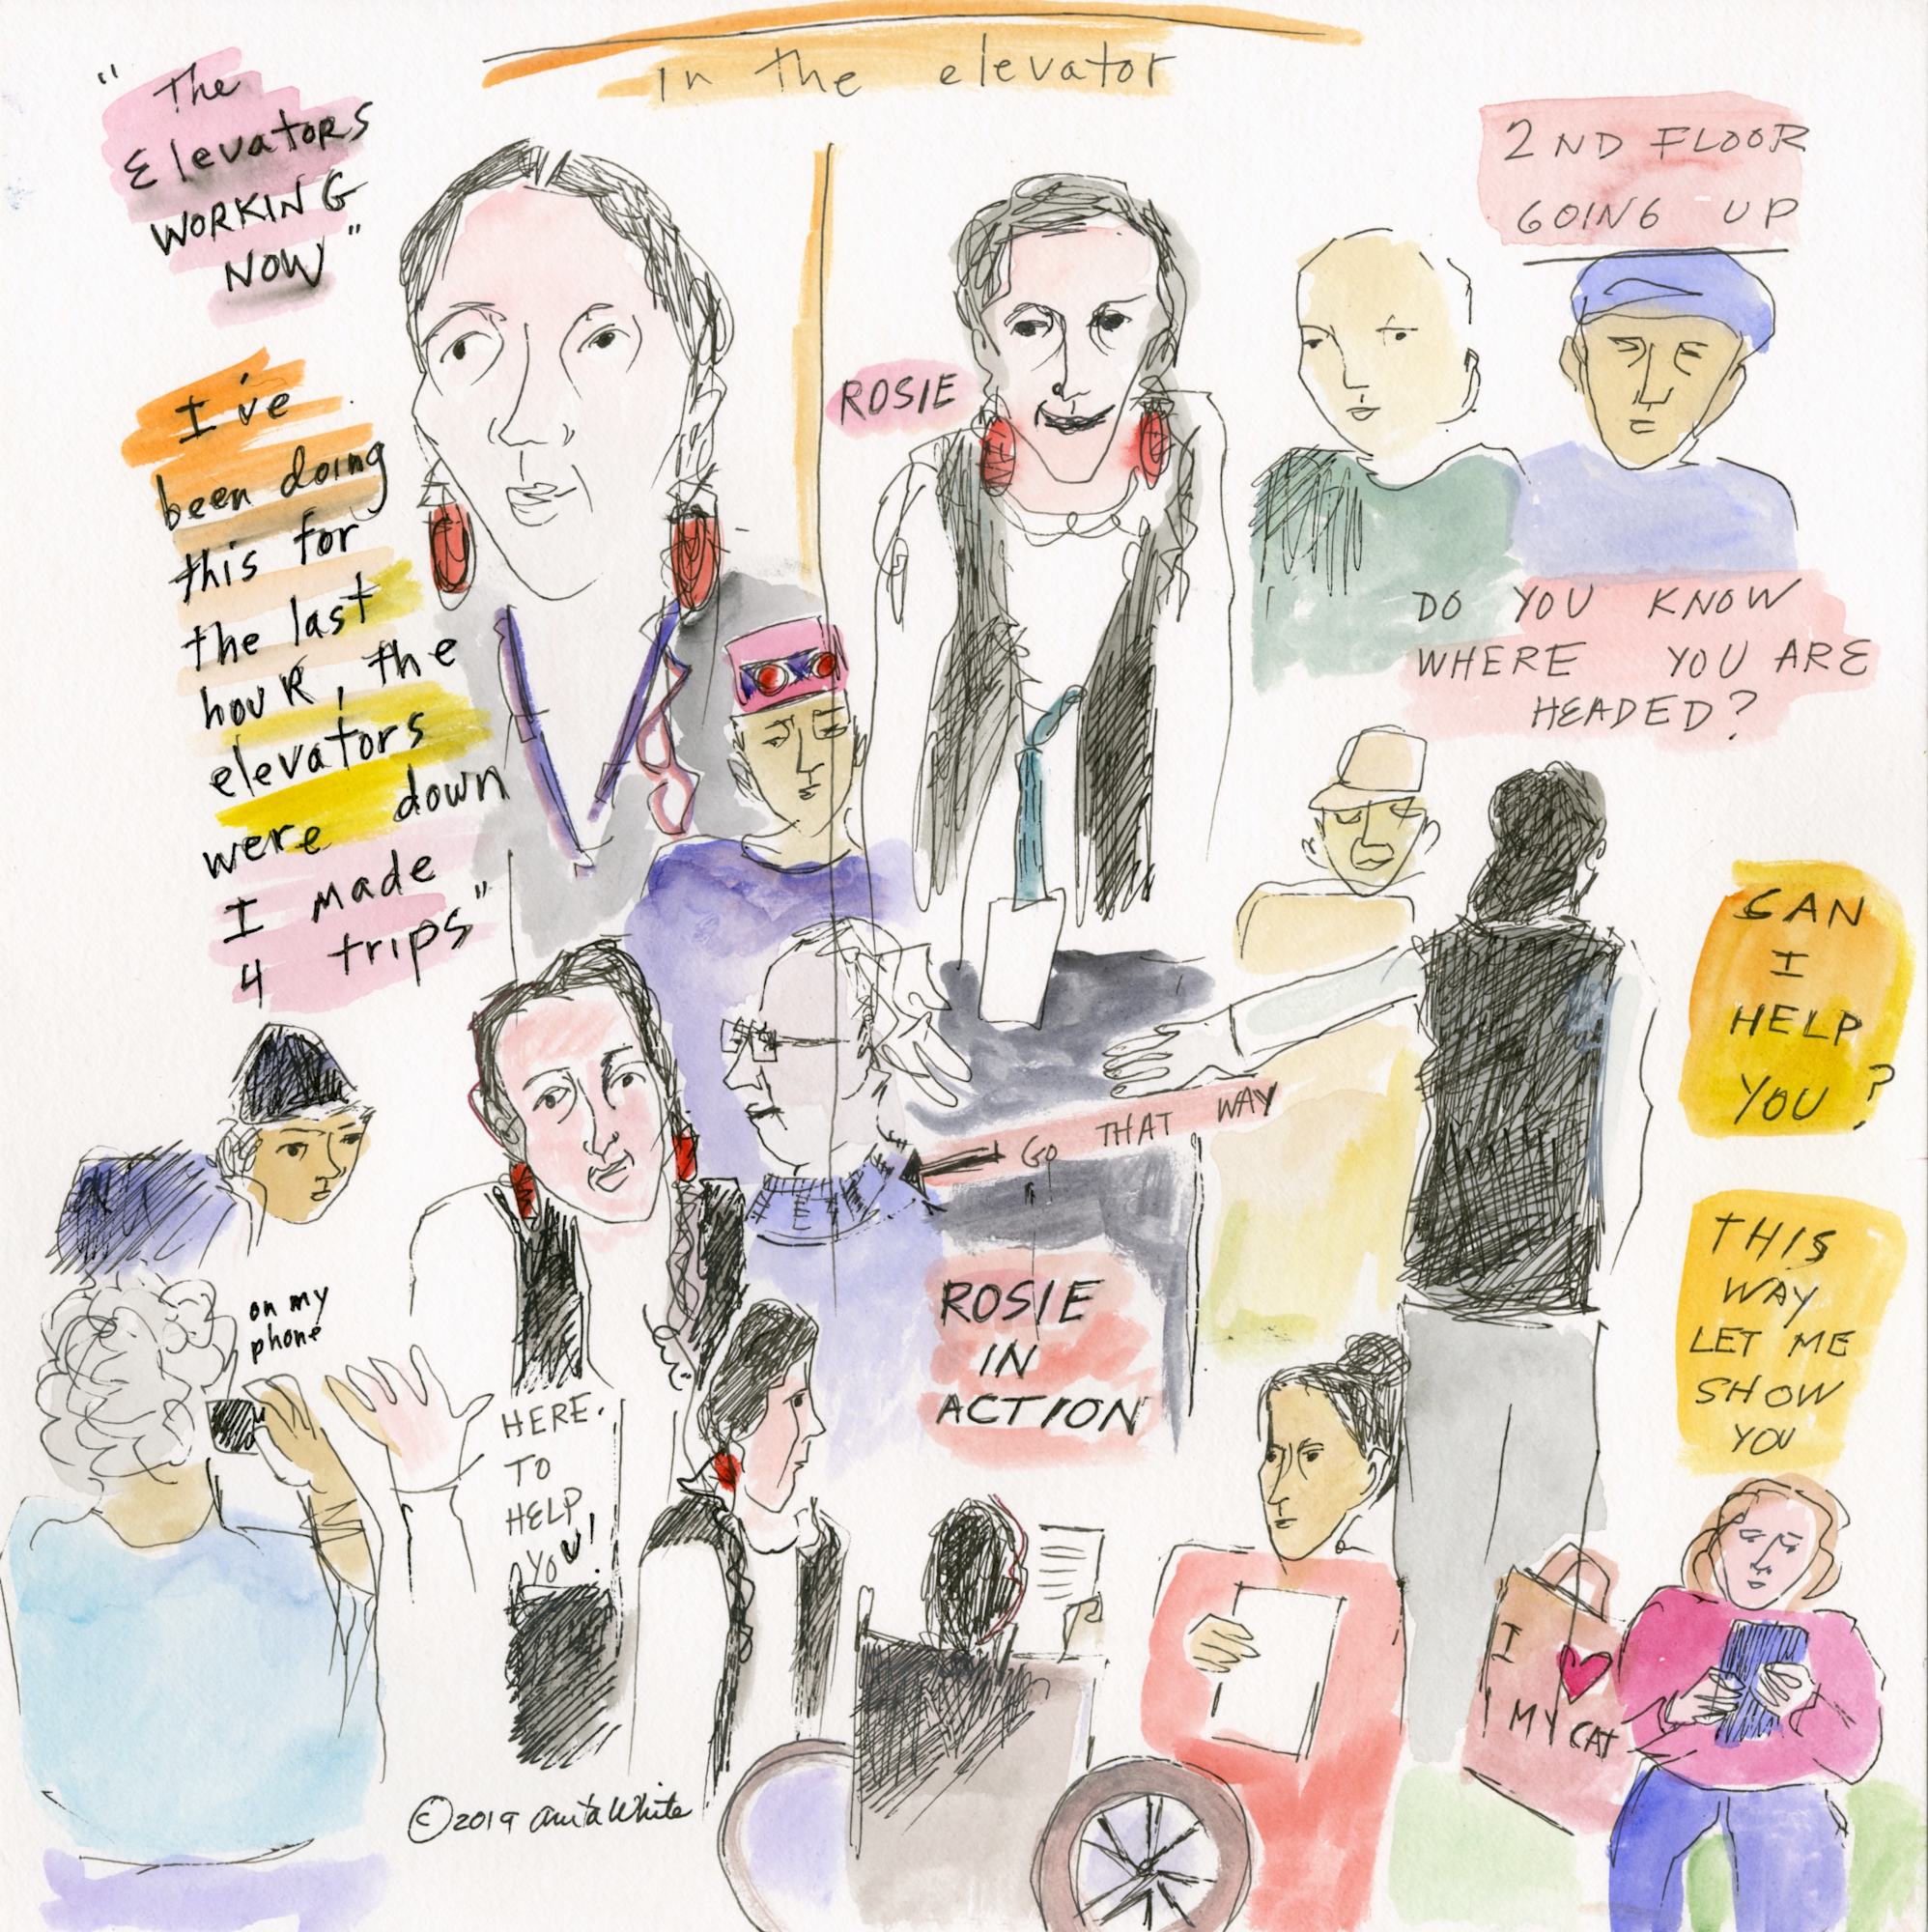 in the elevator
"The
Elevators
WORKING
NOW"
I've
been doing
this for
the last
hour, the
elevators
were down
I made
4 trips"
ROSIE
2ND FLOOR
GOING UP
DO YOU KNOW
WHERE YOU ARE
HEADED?
CAN
I
HELP
YOU?
GO THAT WAY
THIS
WAY
LET ME
SHOW
YOU
ROSIE
IN
ACTION
on my
phone
HERE.
TO
HELP
YOU!
I ♥
MY CAT
©2019 Anita White